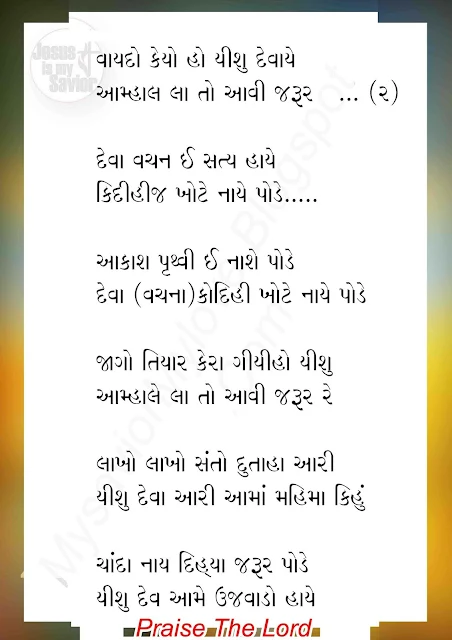 Jesus
is my
Savior
વાયદો કેયો હો યીશુ દેવાયે
આમ્હાલ લા તો આવી જરૂર ... (૨)
દેવા વચન ઈ સત્ય હાયે
કિદીહીજ ખોટે નાયે પોડે.....
આકાશ પૃથ્વી ઈ નાશે પોડે
દેવા (વચના)કોદિહી ખોટે નાયે પોડે
જાગો તિયાર કેરા ગીયીહો યીશુ
આમ્હાલે લા તો આવી જરૂર રે
લાખો લાખો સંતો દુતાહા આરી
યીશુ દેવા આરી આમાં મહિમા કિહું
ચાંદા નાય દિહ્યા જરૂર પોડે
યીશુ દેવ આમે ઉજવાડો હાયે
Praise The Lord